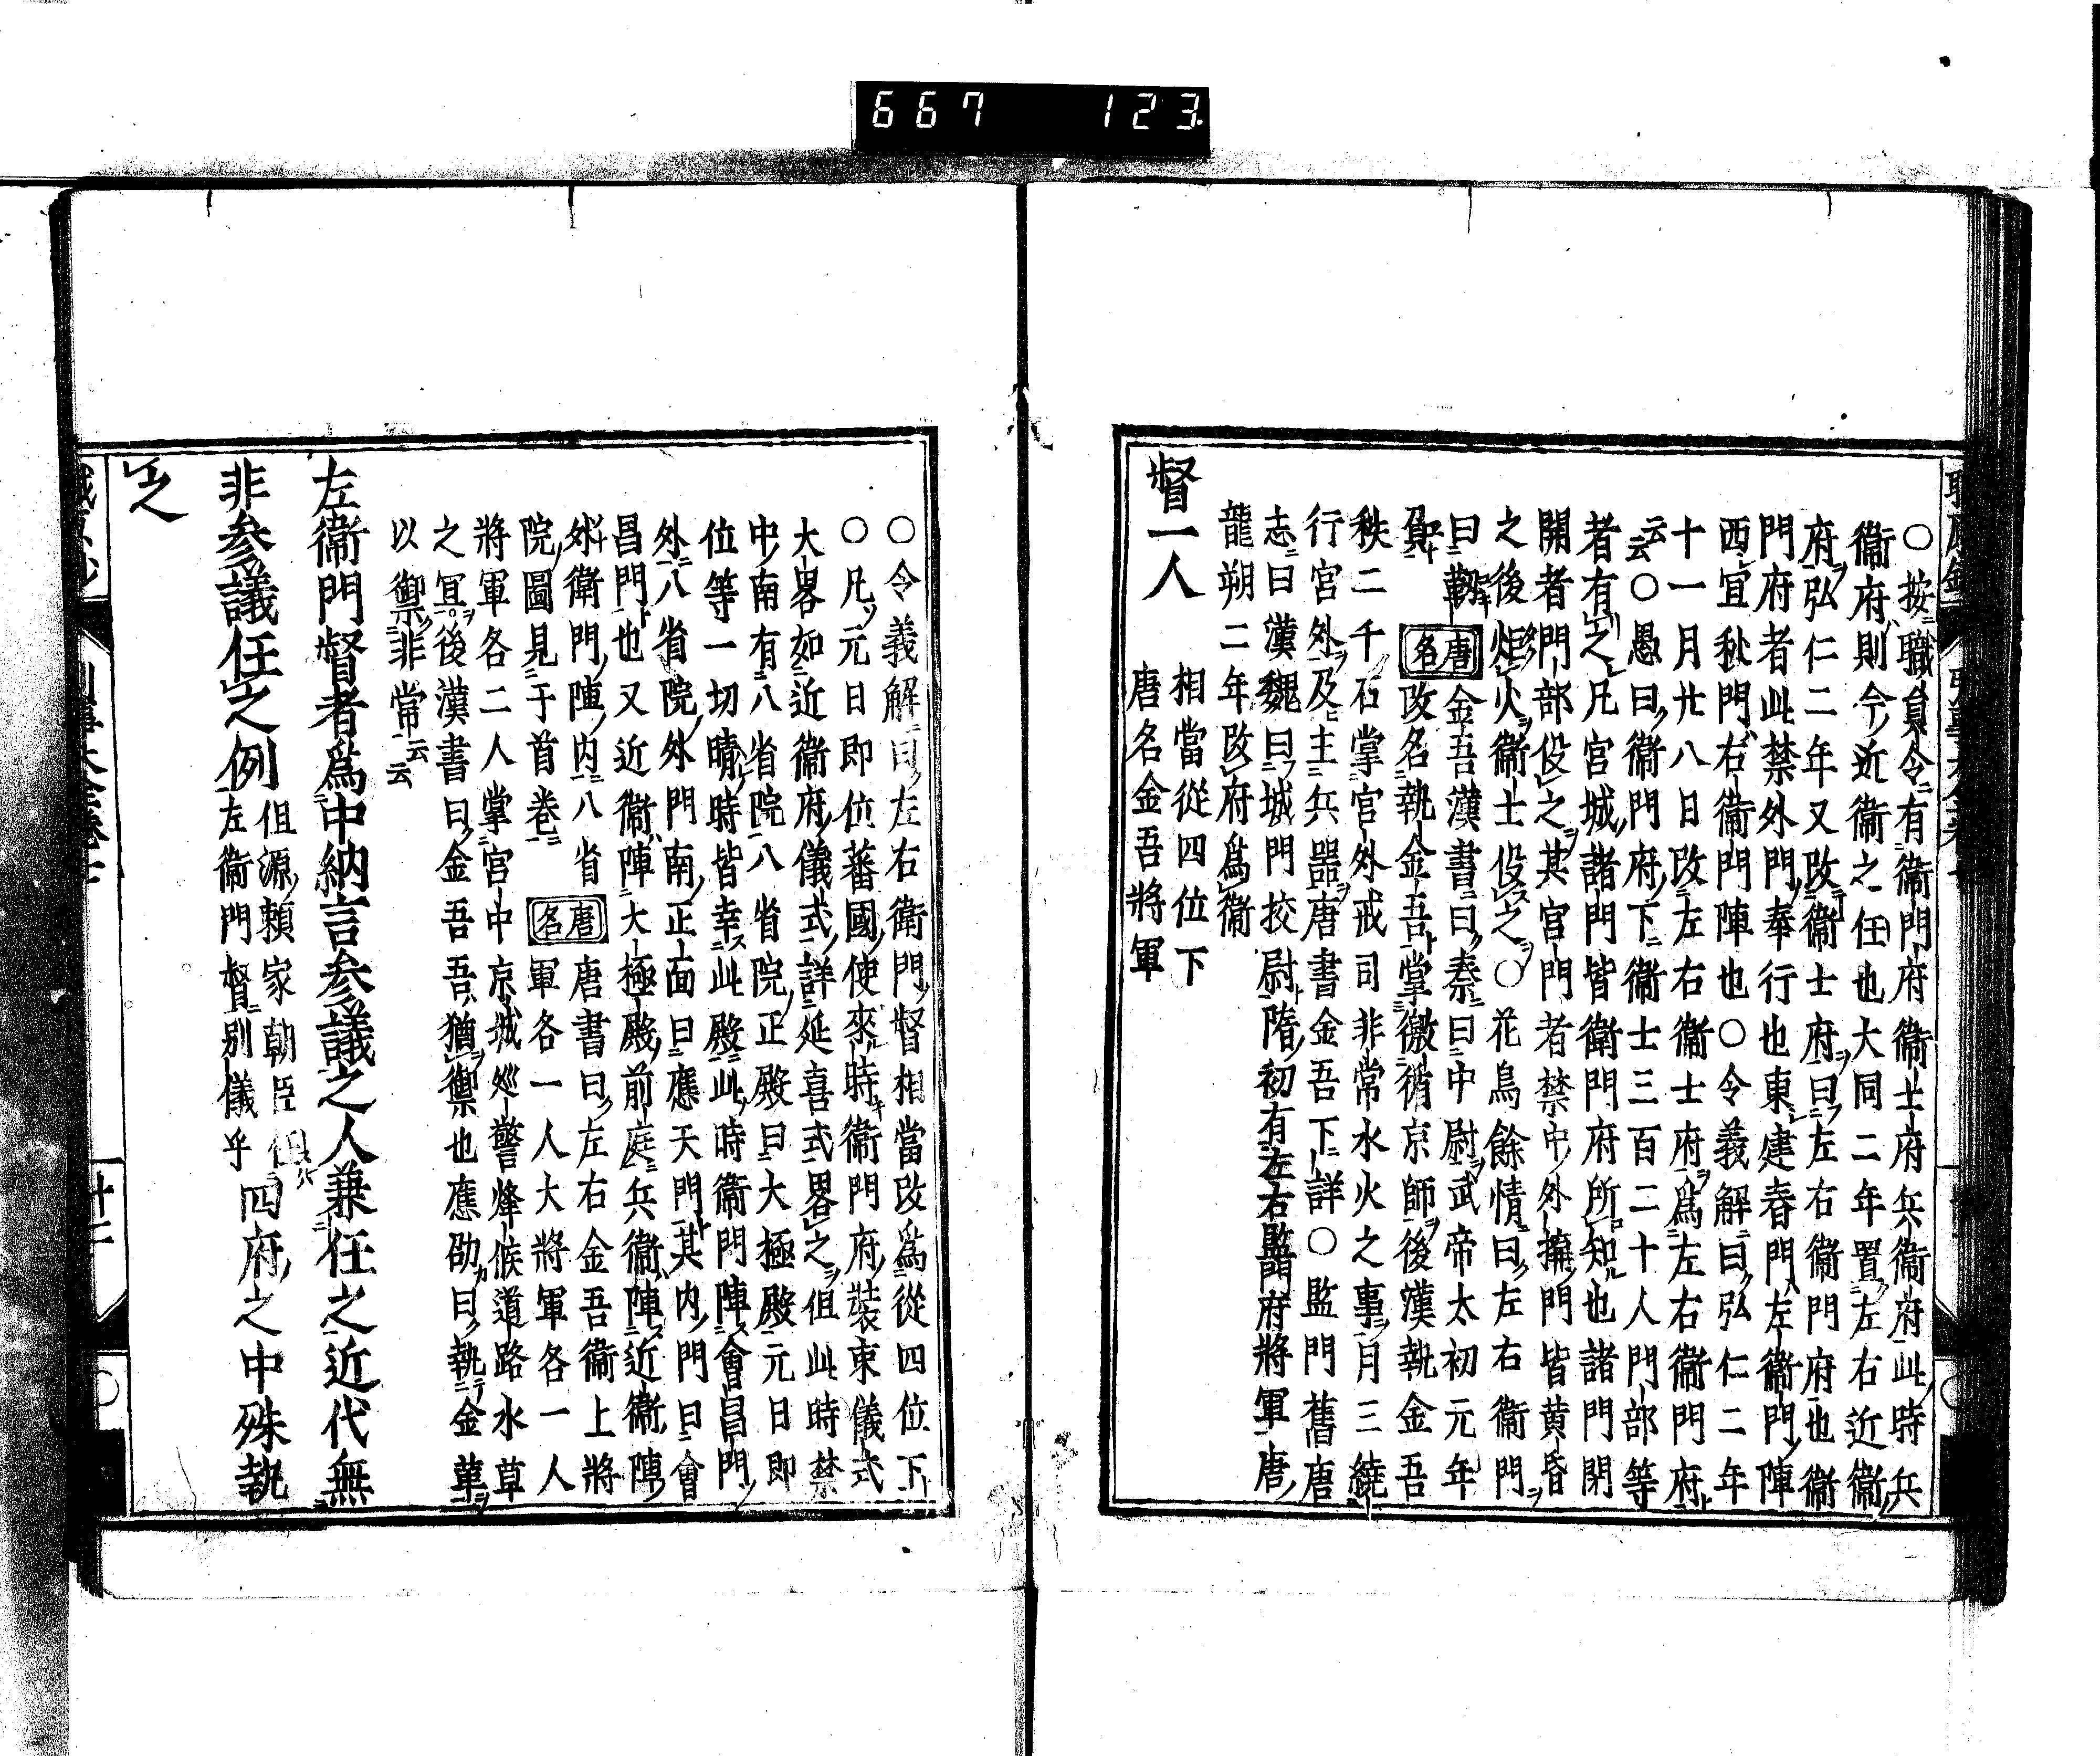 667 123
○按職員令有衞門府衞士府兵衞府此時兵
衞府則今近衞之任也大同二年置左右近衞
府弘仁二年又改衞士府曰左右衞門府也衞
門府者此禁外門奉行也東建春門左衞門陣
西宜秋門右衞門陣也○令義解曰弘仁二年
十一月廿八日改左右衞士府爲左右衞門府
云云○愚曰衞門府下衞士三百二十人門部等
者有之凡宮城諸門皆衞門府所知也諸門閉
開者門部役之其宮門者禁中外擁門皆黄昏
之後炬火衞士役之○花鳥餘情曰左右衞門
曰靱負 唐名 金吾漢書曰秦曰中尉武帝太初元年
改名執金吾掌徼循京師後漢執金吾
秩二千石掌宮外戒司非常水火之事月三繞
行宮外及主兵噐唐書金吾下詳○監門舊唐
志曰漢魏曰城門挍尉隋初有左右監門府將軍唐
龍朔二年改府爲衞
督一人 相當從四位下
唐名金吾將軍
○令義解曰左右衞門督相當改爲從四位下
○凡元日即位蕃國使來時衞門府裝束儀式
大畧如近衞府儀式詳延喜式畧之但此時禁
中南有八省院八省院正殿曰大極殿元日即
位等一切晴時皆幸此殿此時衞門陣會昌門
外八省院外門南正面曰應天門其内門曰會
昌門也又近衞陣大極殿前庭兵衞陣近衞陣
外衞門陣内八省
院圖見于首卷 唐名 唐書曰左右金吾衞上將
軍各一人大將軍各一人
將軍各二人掌宮中京城巡警烽候道路水草
之冝後漢書曰金吾吾猶禦也應劭曰執金革
以禦非常云云
左衞門督者爲中納言參議之人兼任之近代無
非參議任之例 但源頼家朝臣
左衞門督別儀乎 四府之中殊執
之